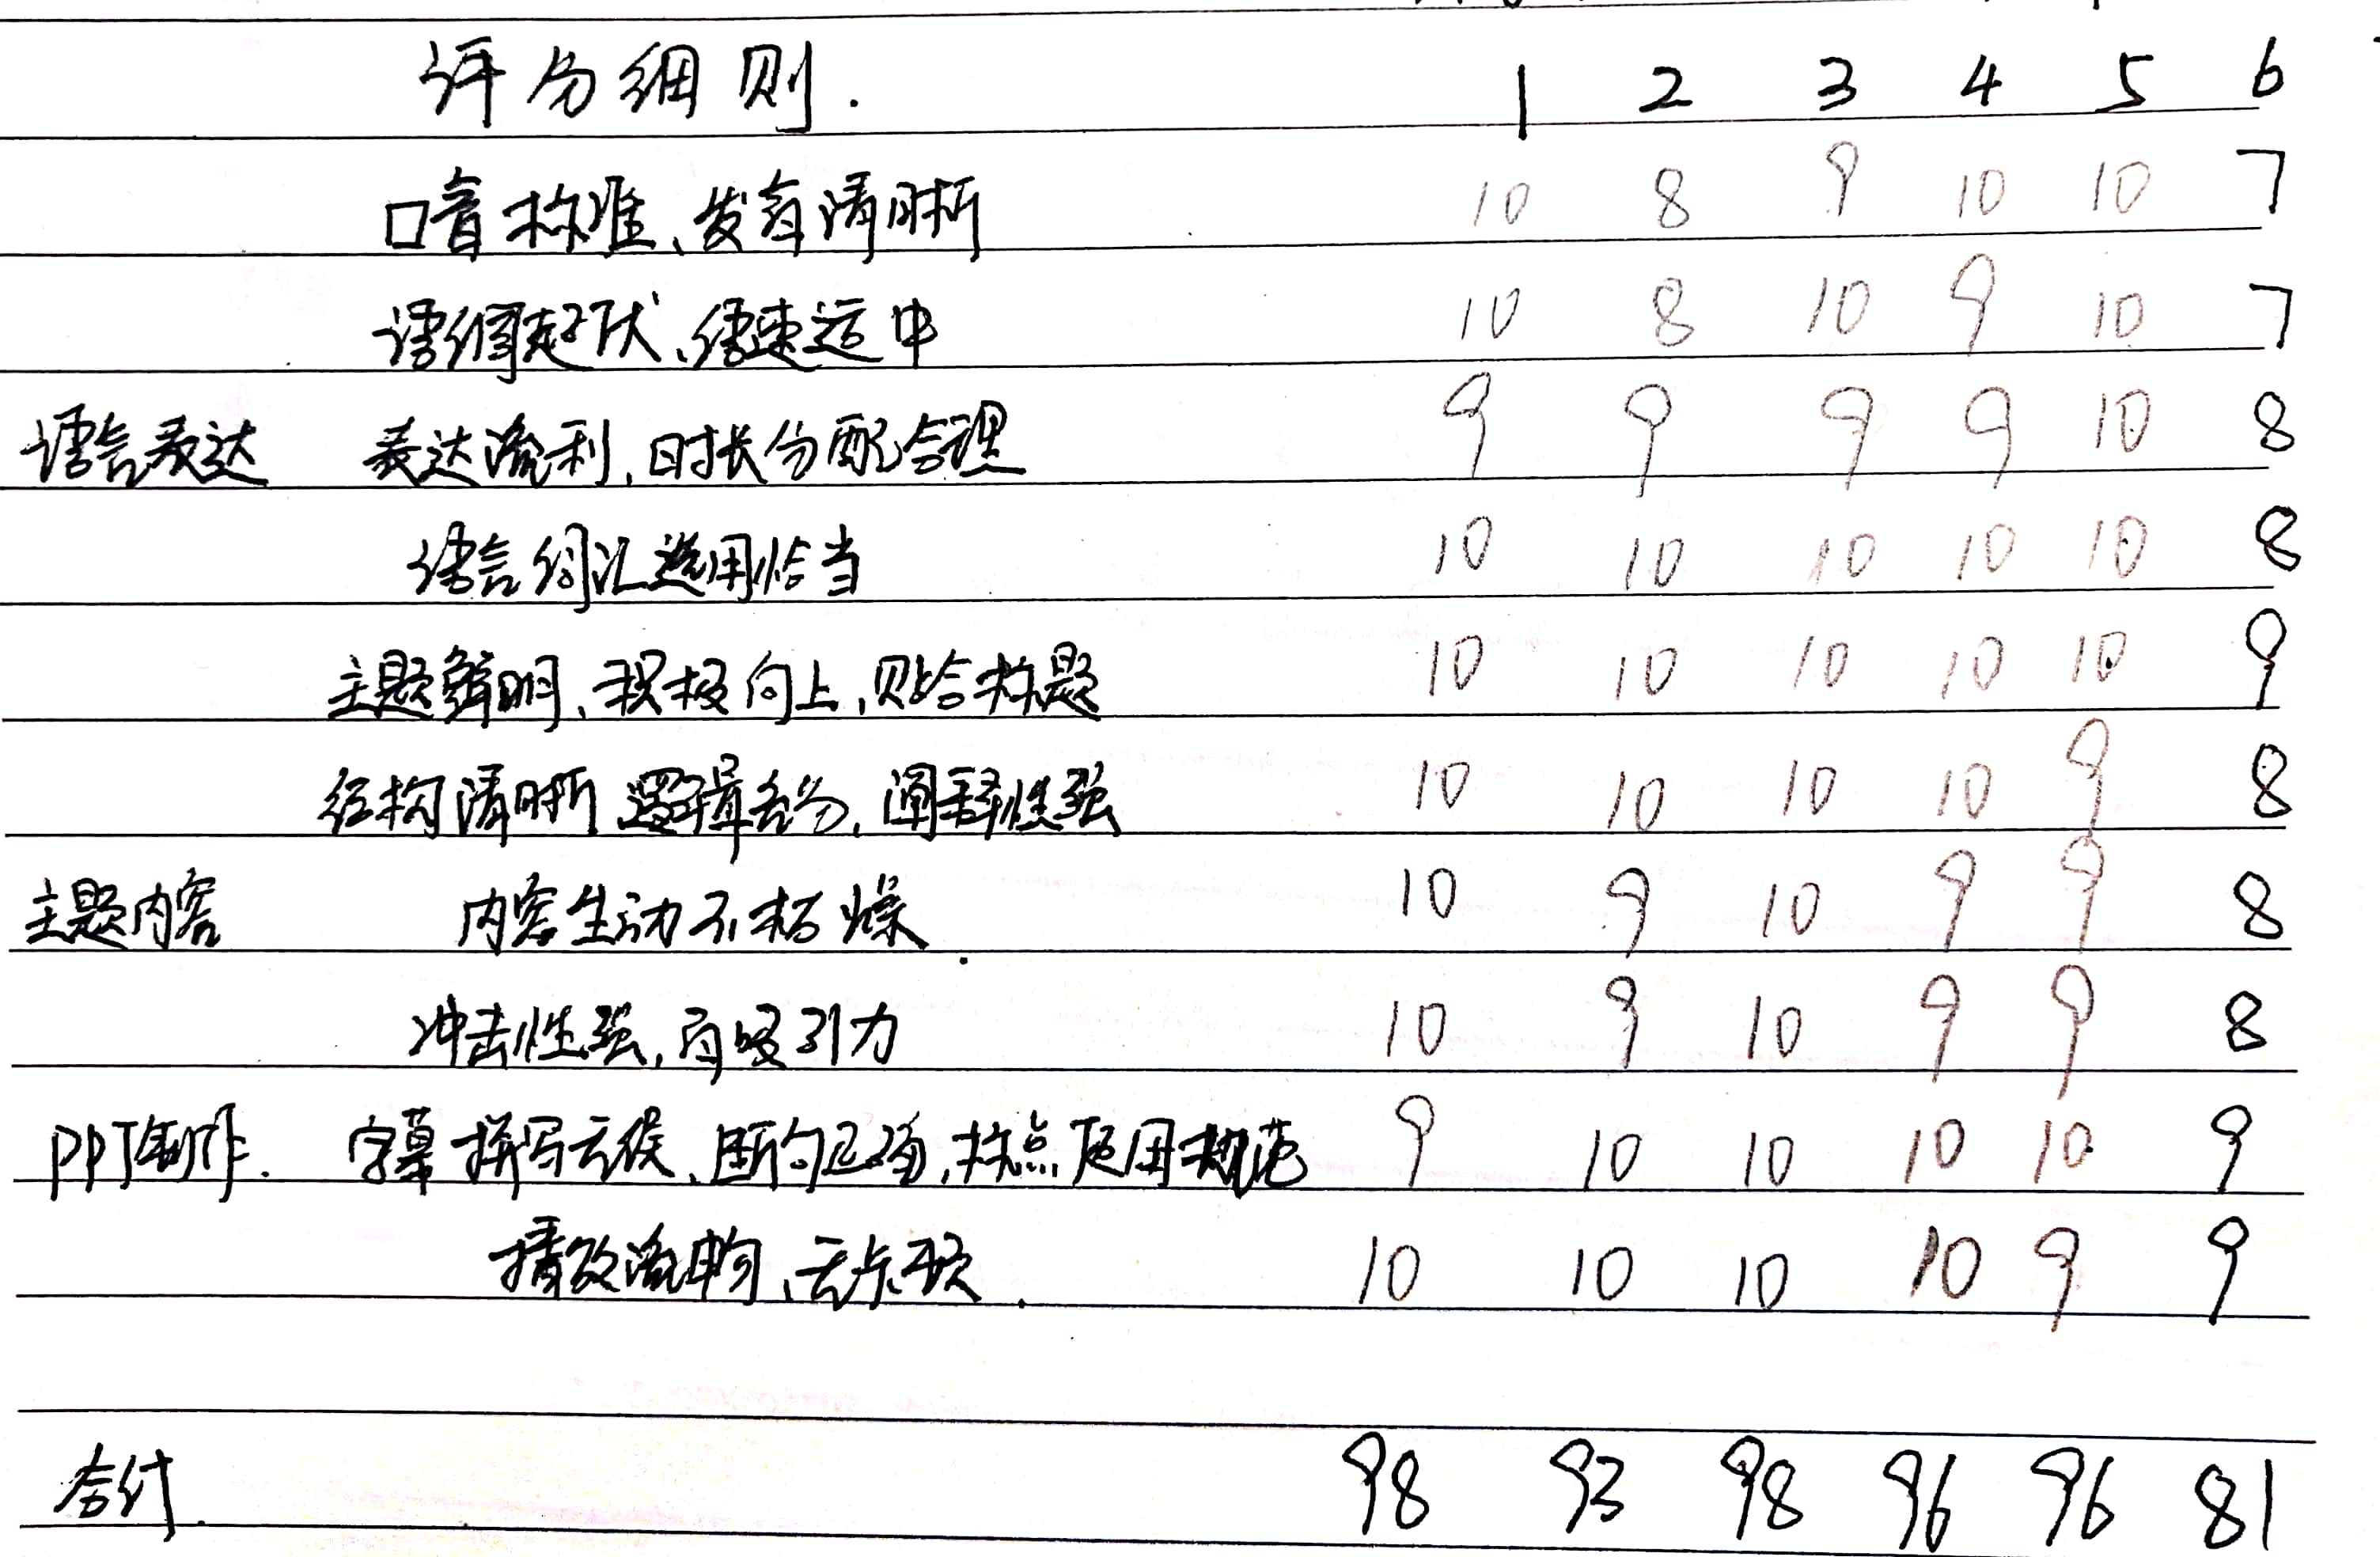 评分细则. 1 2 3 4 5 6
口音标准、发音清晰 10 8 9 10 10 7
语调起伏、语速适中 10 8 10 9 10 7
语言表达 表达流利,时长分配合理 9 9 9 9 10 8
语言词汇选用恰当 10 10 10 10 10 8
主题鲜明、积极向上,贴合标题 10 10 10 10 10 9
结构清晰 逻辑名分,阐释性强 10 10 10 10 9 8
主题内容 内容生动不枯燥. 10 9 10 9 9 8
冲击性强,有吸引力 10 9 10 9 9 8
PPT制作. 字幕拼写无误、断句正确,标点使用规范 9 10 10 10 10 9
播放流畅、无卡顿. 10 10 10 10 9 9
合计. 98 93 98 96 96 81